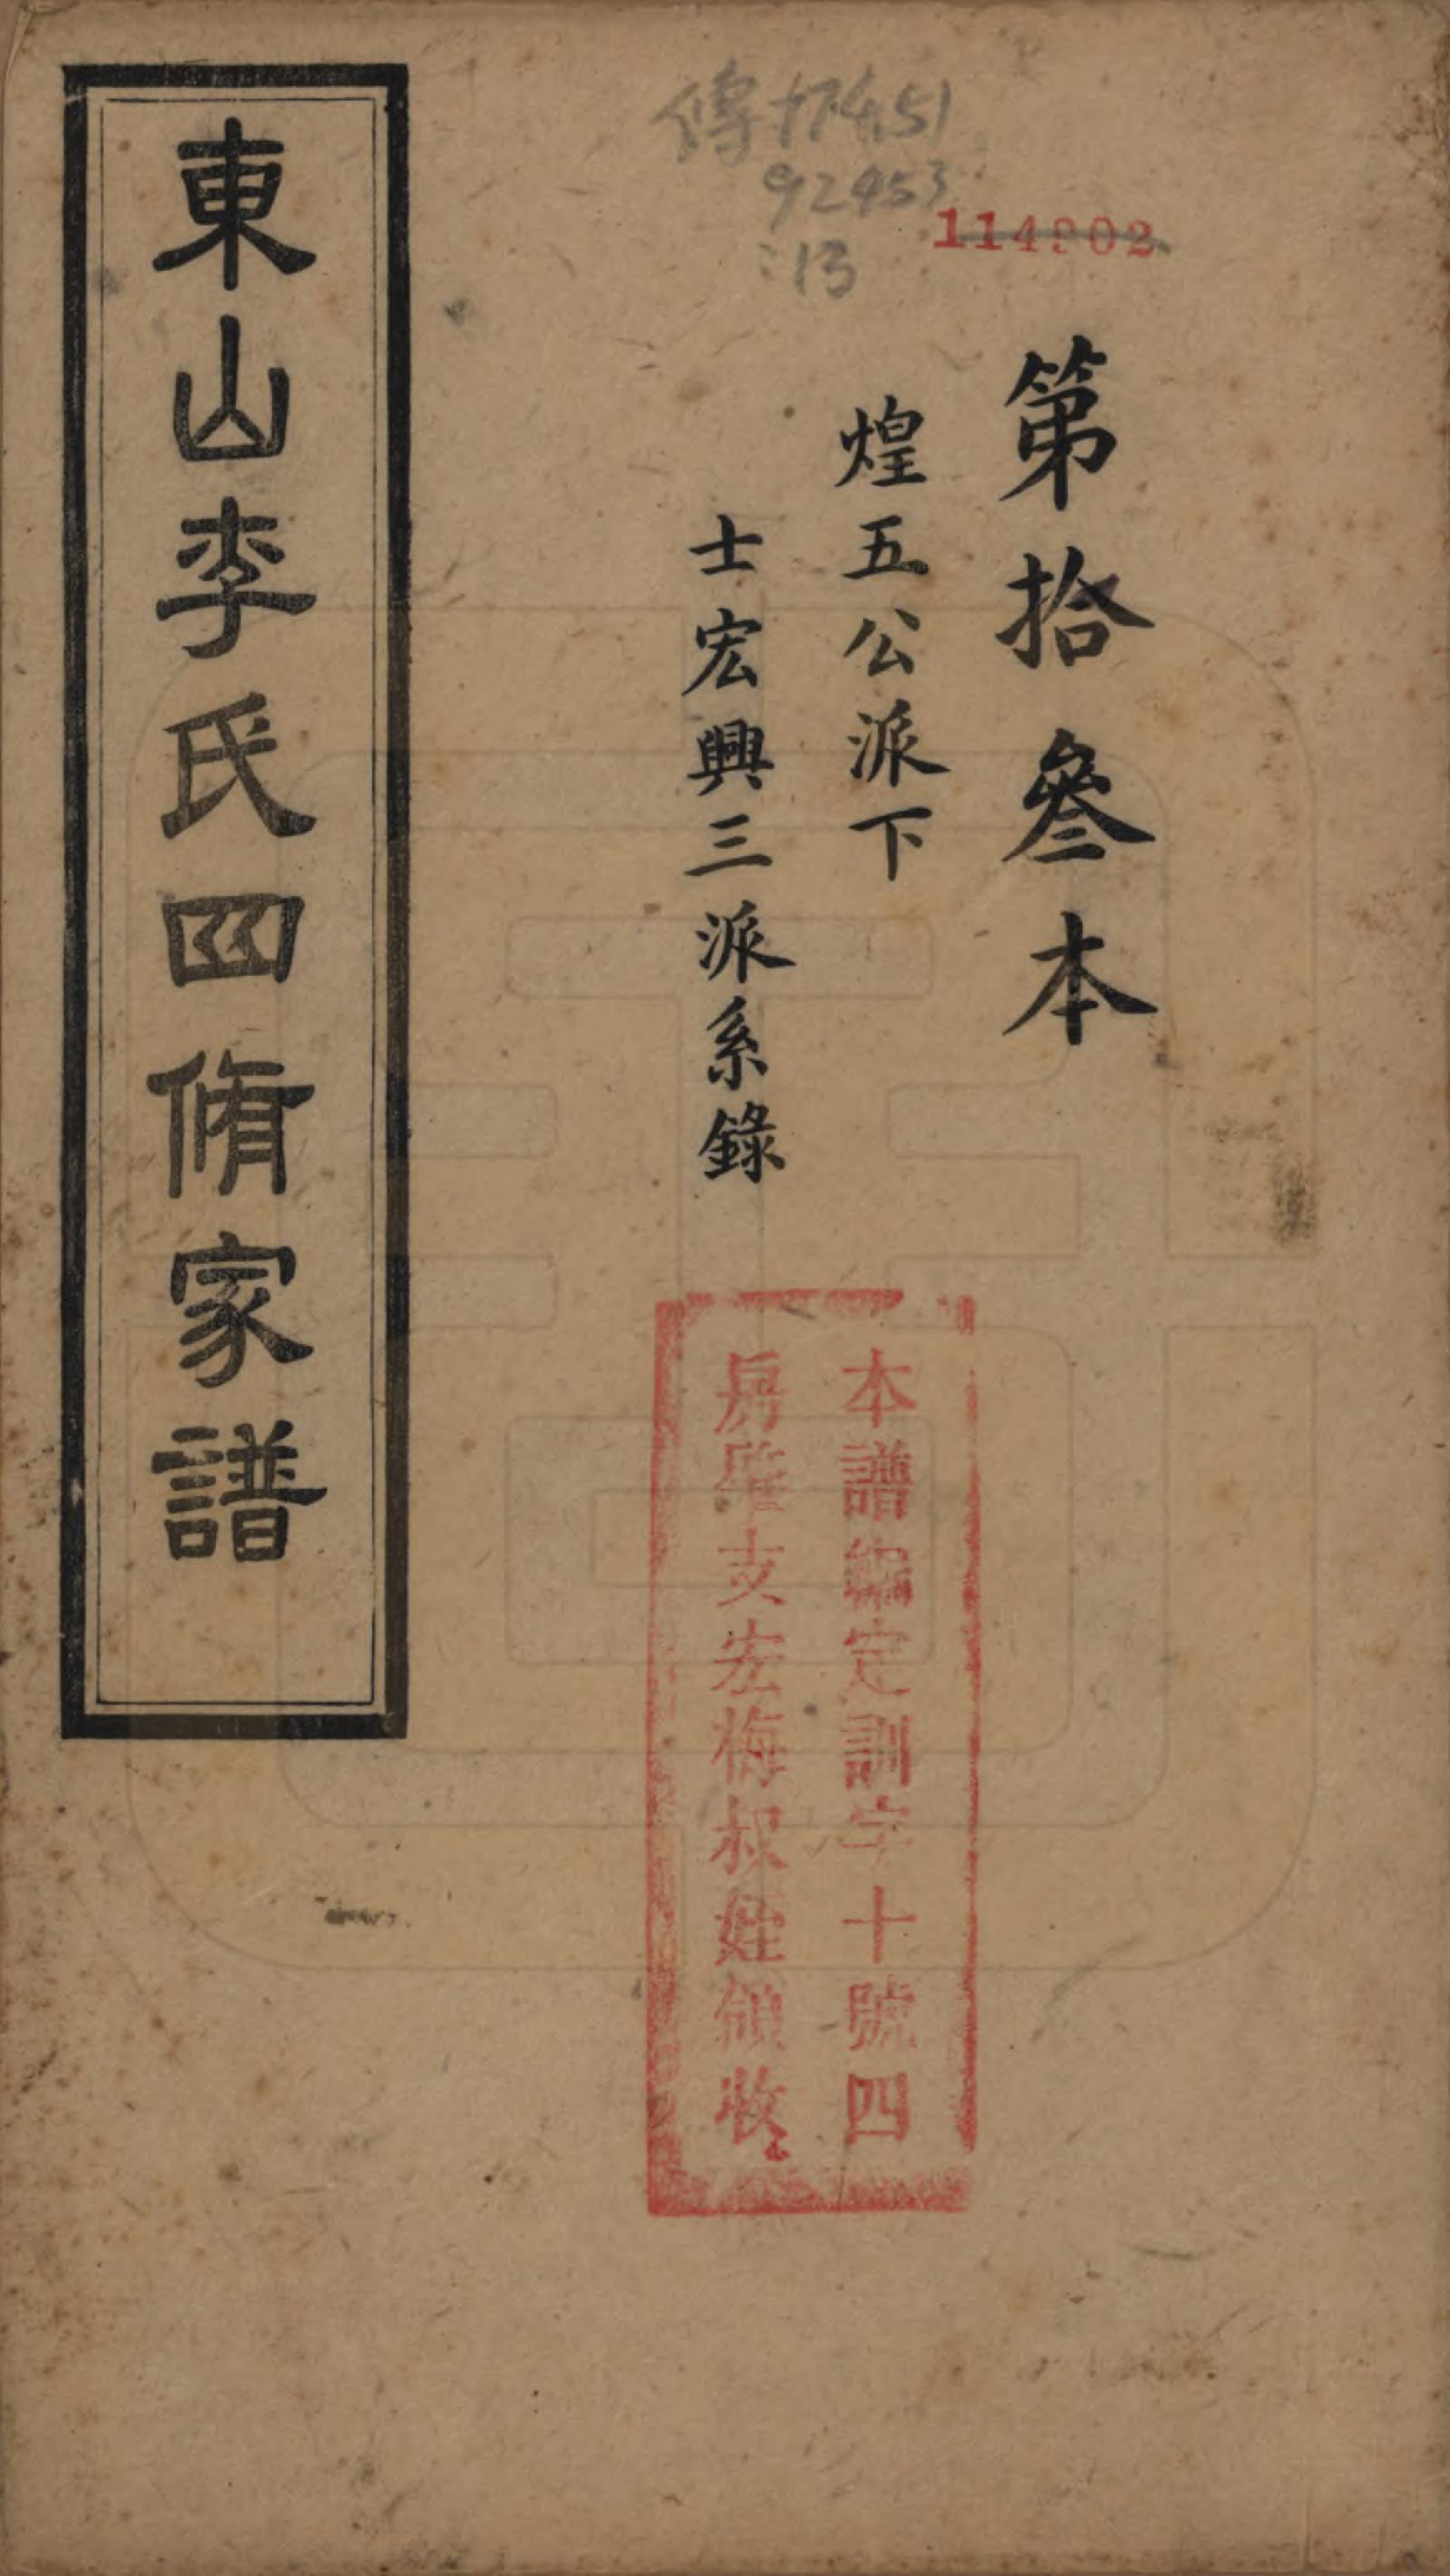 傳
92453
:13
114902
第拾叄本
煌五公派下
士宏興三派系錄
東山李氏四脩家譜
本譜編定訓字十號四
房肇支宏梅叔姪領收